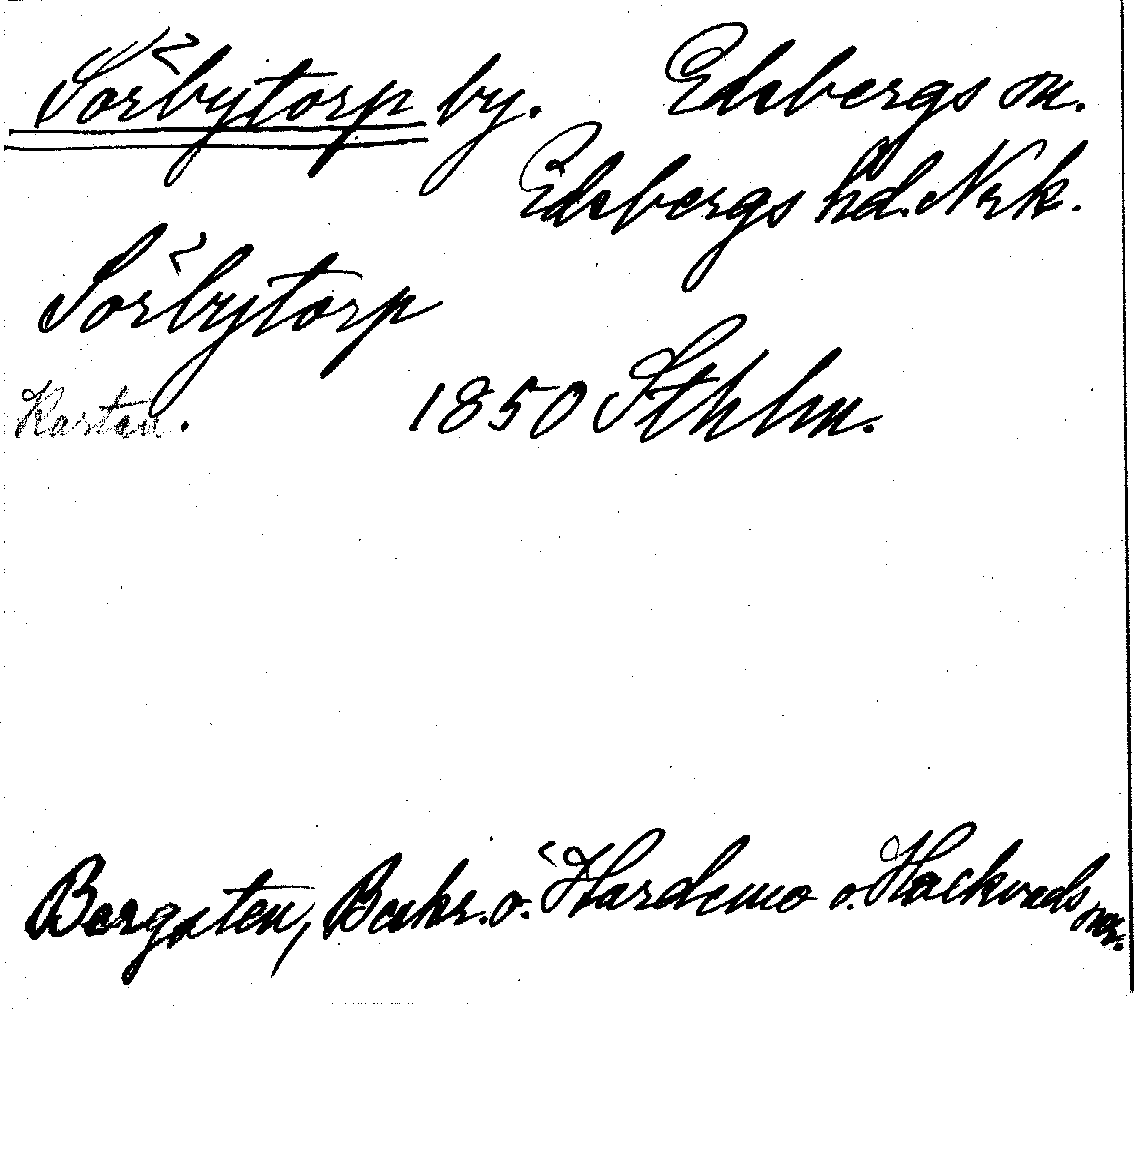 Sörbytorp by. Edsbergs sn.
Edsbergs hd. Nrk.
Sörbytorp
Kartan. 1850 Sthlm.
Bergsten, Beskr. ö. Hardemo o. Hackvads snr.